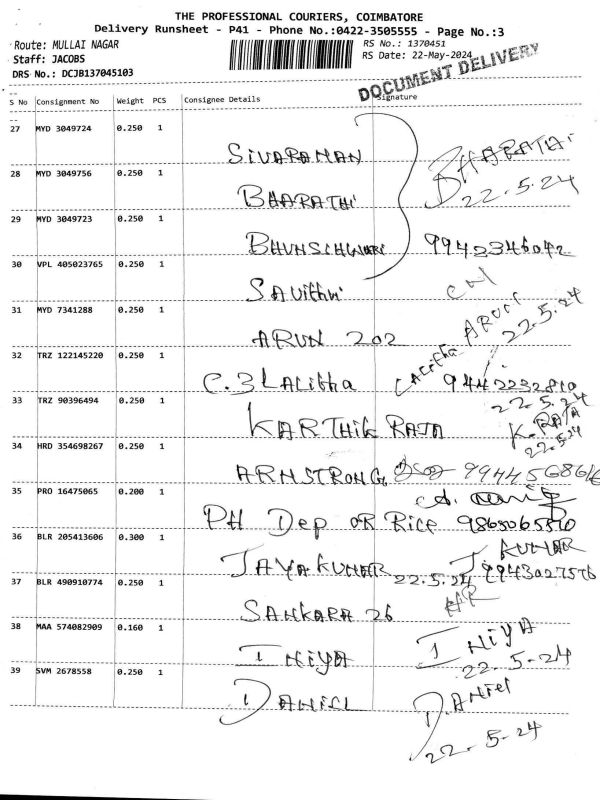 THE PROFESSIONAL COURIERS, COIMBATORE
Delivery Runsheet - P41 - Phone No.:0422-3505555 - Page No.:3
Route: MULLAI NAGAR RS No.: 1370451
Staff: JACOBS RS Date: 22-May-2024
DRS No.: DCJB137045103
DOCUMENT DELIVERY
S No Consignment No Weight PCS Consignee Details Signature
27 MYD 3049724 0.250 1
SIVARAMAN BHARATHI
28 MYD 3049756 0.250 1 22.5.24
BHARATHI
29 MYD 3049723 0.250 1
9942346042
30 VPL 405023765 0.250 1
Savithri
31 MYD 7341288 0.250 1 ARUN 22.5.24
ARUN 202
32 TRZ 122145220 0.250 1 Lalitha
C.B Lalitha 9442232810
33 TRZ 90396494 0.250 1 22.5.24
KARTHIK RAJA K.RAJA
34 HRD 354698267 0.250 1 22.5.24
ARMSTRONG 9944568616
35 PRO 16475065 0.200 1
PH Dep OR Rice 9865065570
36 BLR 205413606 0.300 1 J KUMAR
JAYAKUMAR 22.5.24 9943027576
37 BLR 490910774 0.250 1
SANKARA 26
38 MAA 574082909 0.160 1 INIYA
INIYA 22.5.24
39 SVM 2678558 0.250 1 D.ANIEL
DANIEL
22.5.24